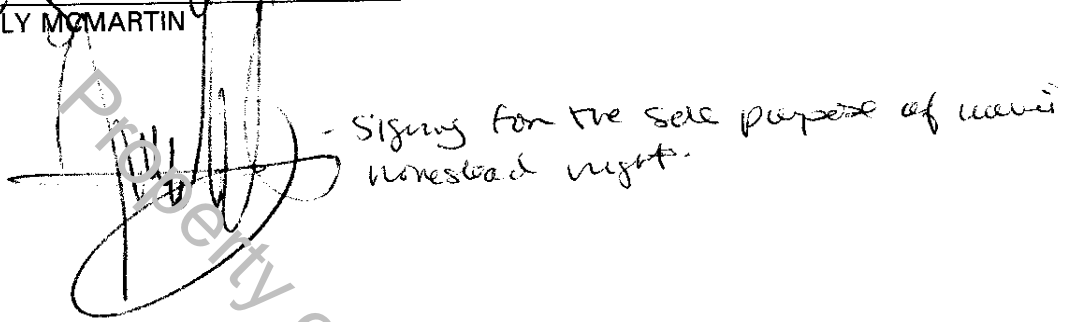 LY MCMARTIN
- Signing for the sole purpose of
homestead right.
Property